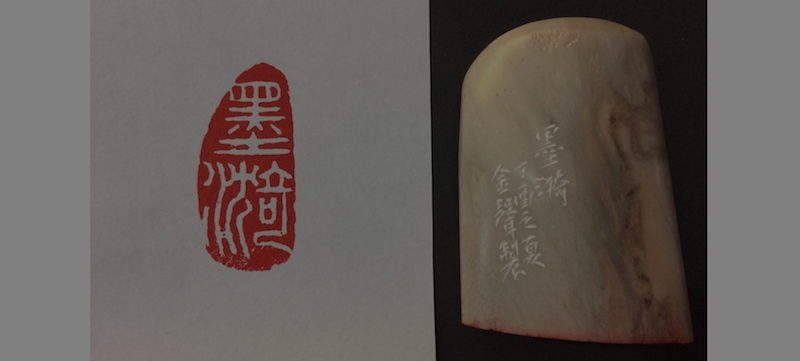 墨漪
墨漪
丁酉之夏
金聲製